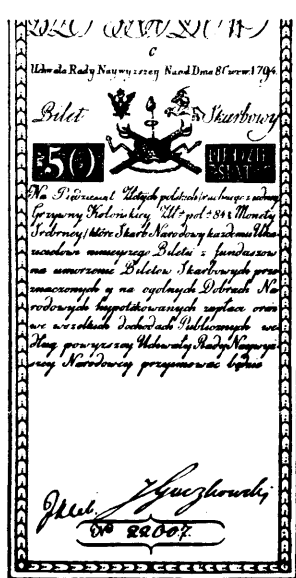 C
Uchwała Rady Naywyzszey Narod Dnia 8 Czerw. 1794.
Bilet Skarbowy
50 PIĘDZIE SIĄT
Na Piędziesiąt Złotych polskich rachuiąc z iedney
Grzywny Kolońskiey Złt pol 84½ Monety
Srebrney, które Skarb Narodowy każdemu Oka-
zicielowi ninieyszego Biletu z funduszow
na umorzenie Biletow Skarbowych prze-
znaczonych y na ogolnych Dobrach Na-
rodowych hypotekowanych zapłaci oraz
we wszelkich dochodach Publicznych we-
dług powyzszey Uchwały Rady Naywyż-
szey Narodowey przyimować będzie
No 22007.